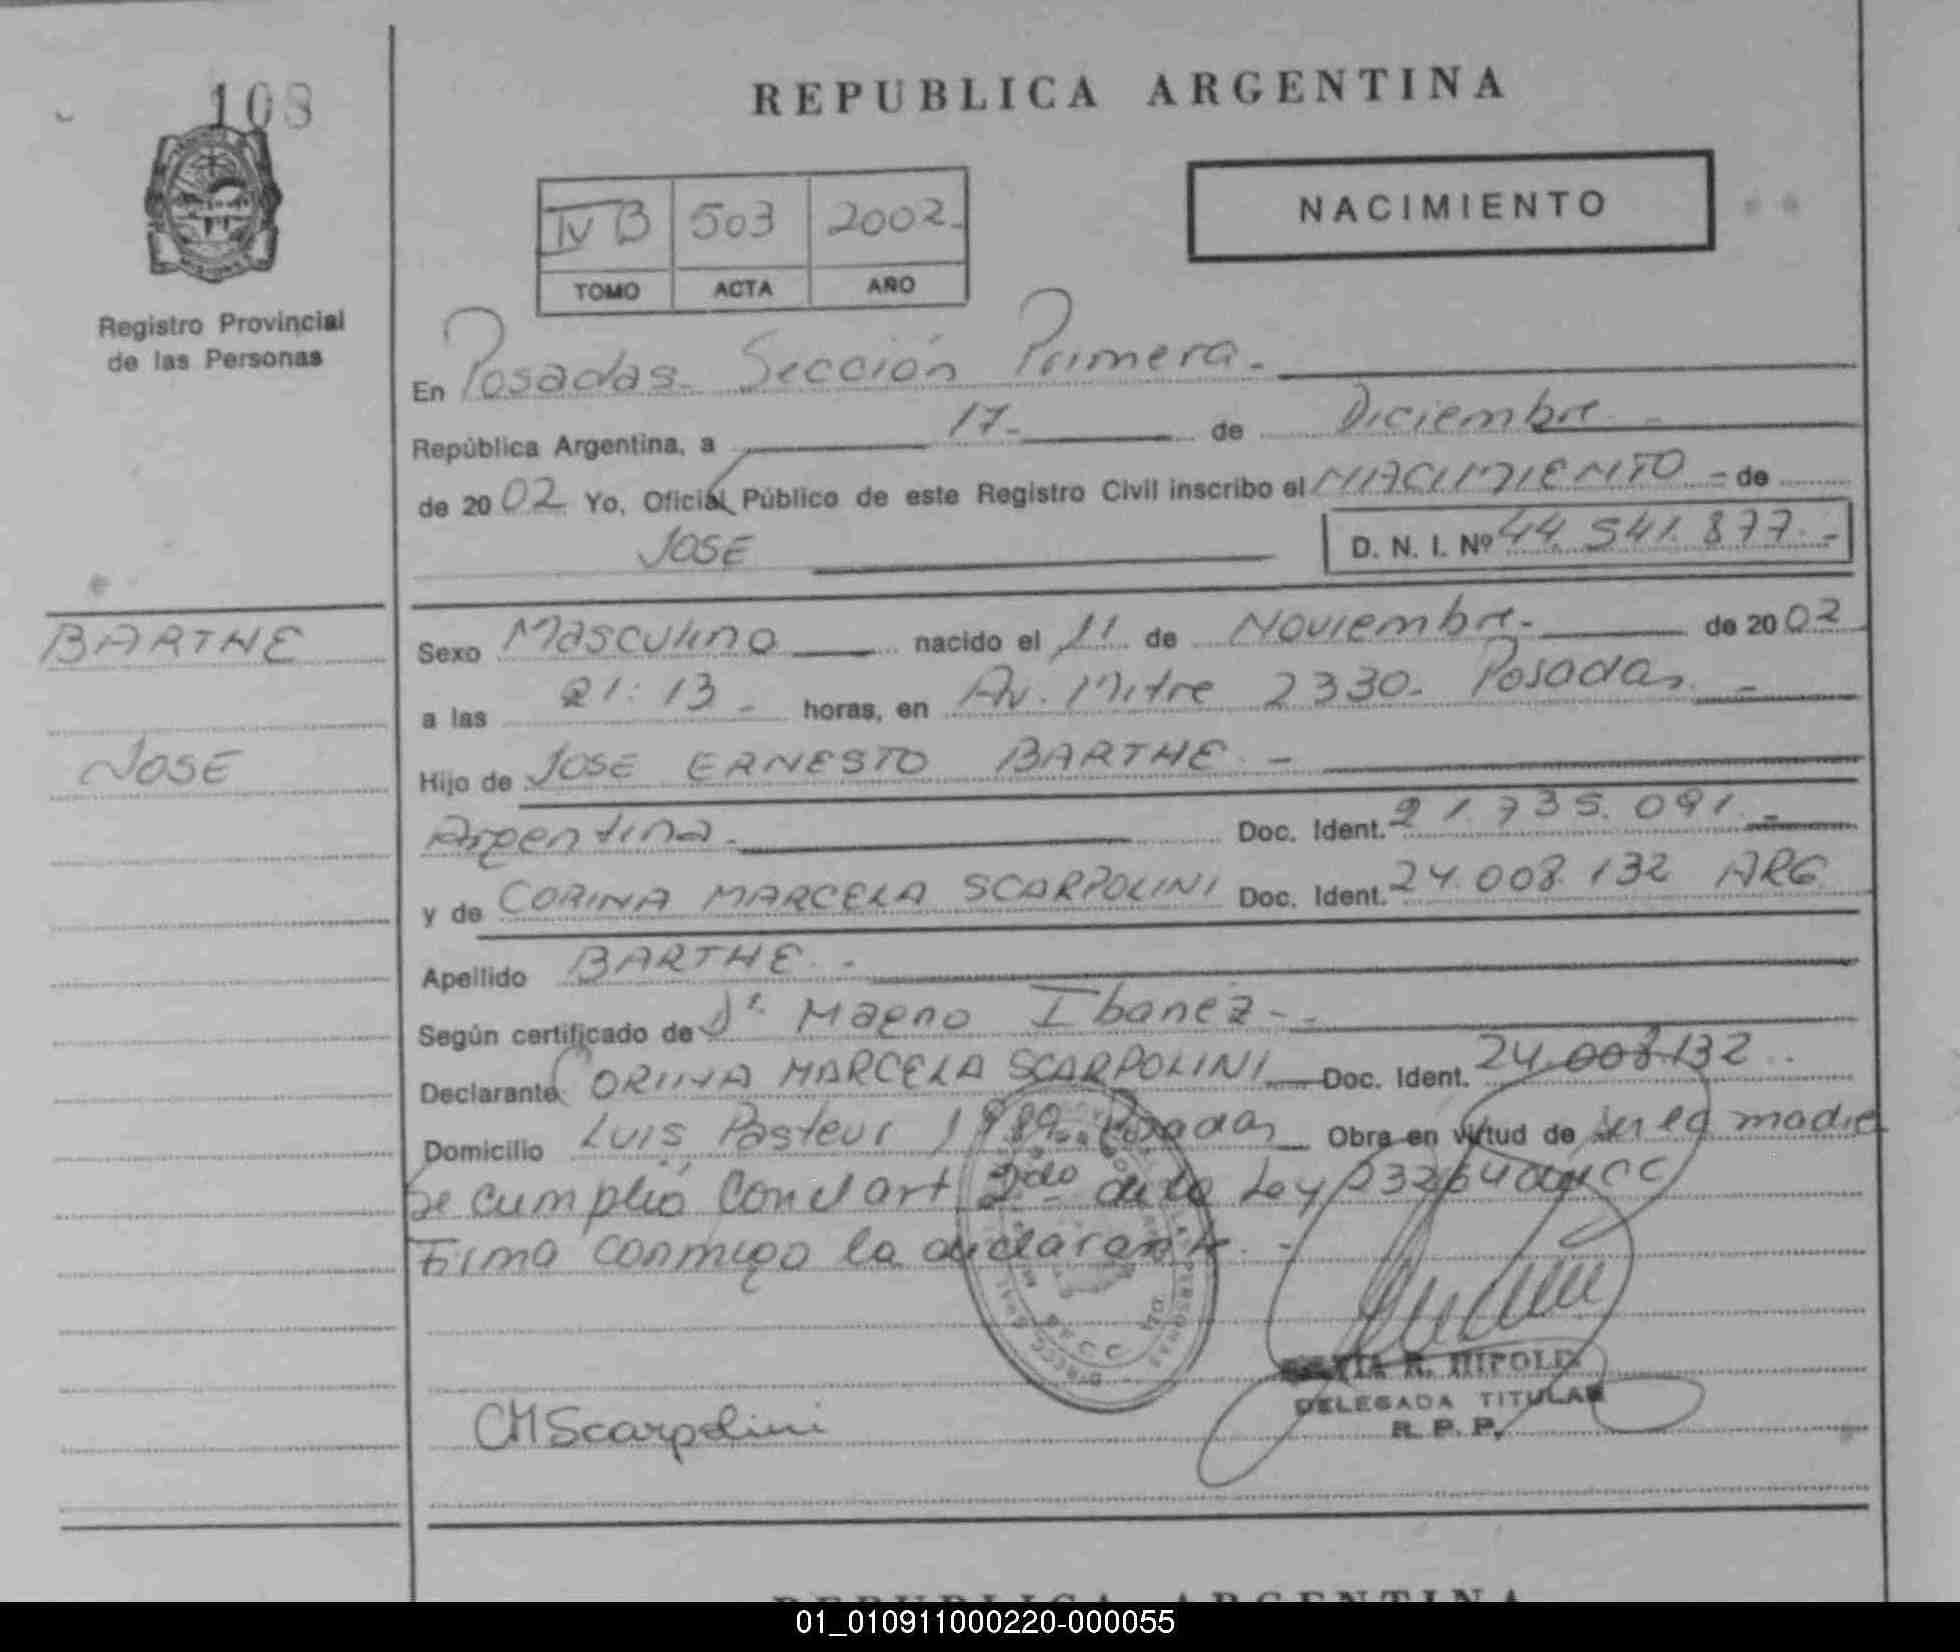 108
REPUBLICA ARGENTINA
NACIMIENTO
IV B 503 2002-
TOMO ACTA AÑO
Registro Provincial
de las Personas
En Posadas. Sección Primera.-
República Argentina, a 17- de Diciembre -
de 2002 Yo, Oficial Público de este Registro Civil inscribo el NACIMIENTO - de
JOSE D. N. I. Nº 44.541.877.-
BARTHE
JOSE
Sexo Masculino nacido el 11 de Noviembre.- de 2002
a las 21:13 - horas, en Av. Mitre 2330- Posadas -
Hijo de JOSE ERNESTO BARTHE. -
Argentina.- Doc. Ident. 21.735.091.-
y de CORINA MARCELA SCARPOLINI Doc. Ident. 24.008.132 ARG
Apellido BARTHE. -
Según certificado de Magno Ibanez -.
Declarante CORINA MARCELA SCARPOLINI Doc. Ident. 24.008.132.
Domicilio Luis Pasteur Posadas Obra en virtud de ser la madre
Se cumplió con el art 2do de la Ley 23264 del CC
Firma conmigo la declarante. -
R. HIPOLD
DELEGADA TITULAR
R. P. P.
CMScarpolini
REPUBLICA ARGENTINA
01_010911000220-000055